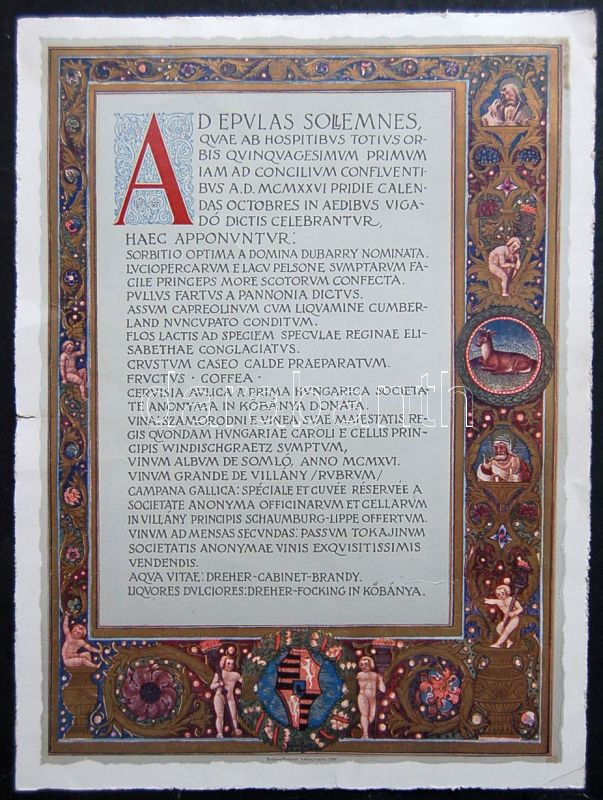 AD EPVLAS SOLLEMNES,
QVAE AB HOSPITIBVS TOTIVS OR-
BIS QVINQVAGESIMVM PRIMVM
IAM AD CONCILIVM CONFLVENTI-
BVS A.D. MCMXXVI PRIDIE CALEN-
DAS OCTOBRES IN AEDIBVS VIGA-
DÓ DICTIS CELEBRANTVR,
HAEC APPONVNTVR:
SORBITIO OPTIMA A DOMINA DUBARRY NOMINATA.
LVCIOPERCARVM E LACV PELSONE SVMPTARVM FA-
CILE PRINCEPS MORE SCOTORVM CONFECTA.
PVLLVS FARTVS A PANNONIA DICTVS.
ASSVM CAPREOLINVM CVM LIQVAMINE CUMBER-
LAND NVNCVPATO CONDITVM.
FLOS LACTIS AD SPECIEM SPECVLAE REGINAE ELI-
SABETHAE CONGLACIATVS.
CRVSTVM CASEO CALDE PRAEPARATVM.
FRVCTVS · COFFEA ·
CERVISIA AVLICA A PRIMA HVNGARICA SOCIETA-
TE ANONYMA IN KŐBÁNYA DONATA.
VINA: SZAMORODNI E VINEA SVAE MAIESTATIS RE-
GIS QVONDAM HVNGARIAE CAROLI E CELLIS PRIN-
CIPIS WINDISCHGRAETZ SVMPTVM,
VINVM ALBVM DE SOMLÓ, ANNO MCMXVI.
VINVM GRANDE DE VILLÁNY /RVBRVM/
CAMPANA GALLICA: SPÉCIALE ET CUVÉE RÉSERVÉE A
SOCIETATE ANONYMA OFFICINARVM ET CELLARVM
IN VILLÁNY PRINCIPIS SCHAUMBURG-LIPPE OFFERTVM.
VINVM AD MENSAS SECVNDAS: PASSVM TOKAJINVM
SOCIETATIS ANONYMAE VINIS EXQVISITISSIMIS
VENDENDIS.
AQVA VITAE: DREHER-CABINET-BRANDY.
LIQVORES DVLCIORES: DREHER-FOCKING IN KŐBÁNYA.